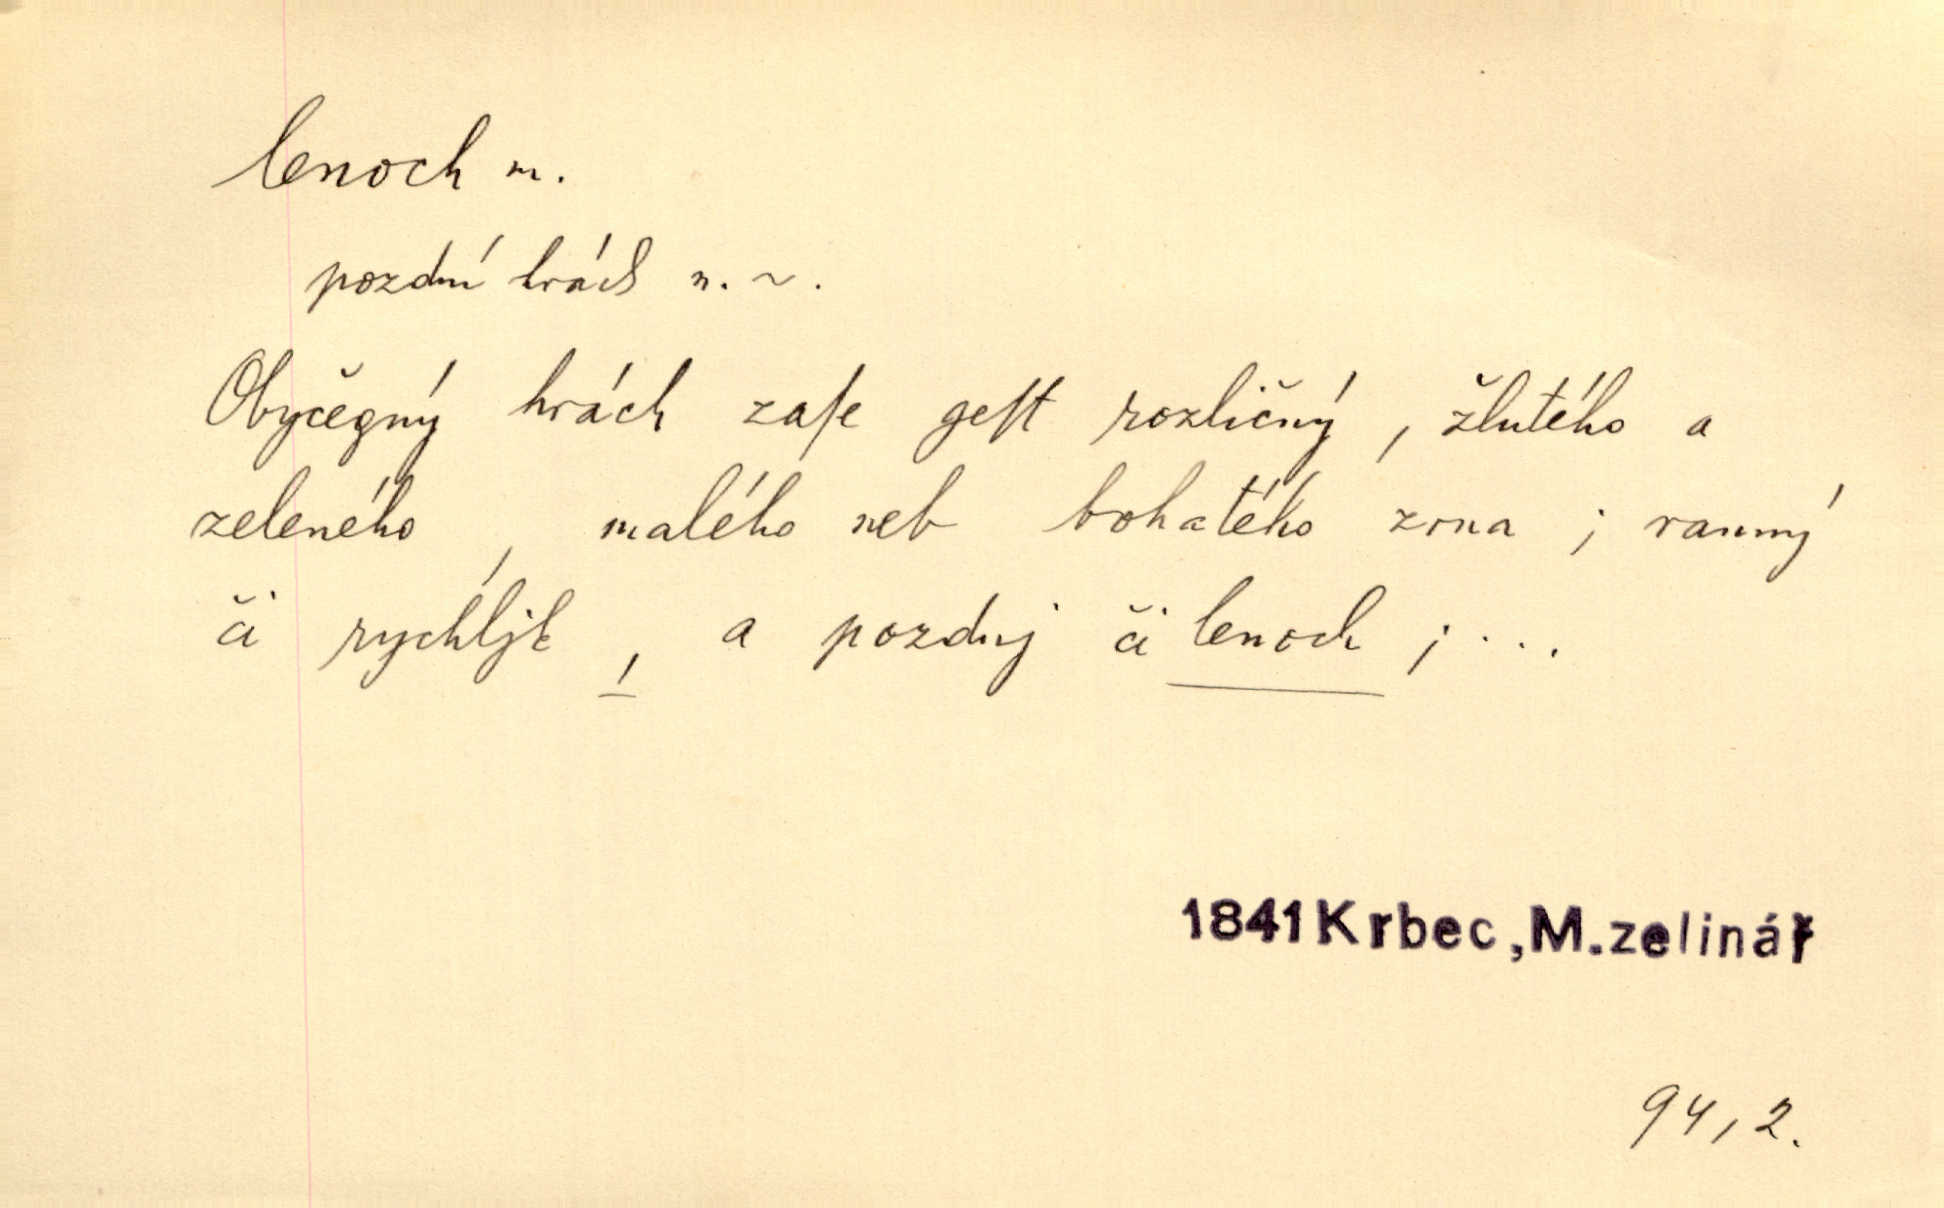 lenoch m.
pozdní hrách n. ~.
Obyčegný hrách zaſe geſt rozličný, žlutého a
zeleného, malého neb bohatého zrna; ranný
či rychljk, a pozdnj či lenoch; ...
1841 Krbec, M. zelinář
94, 2.